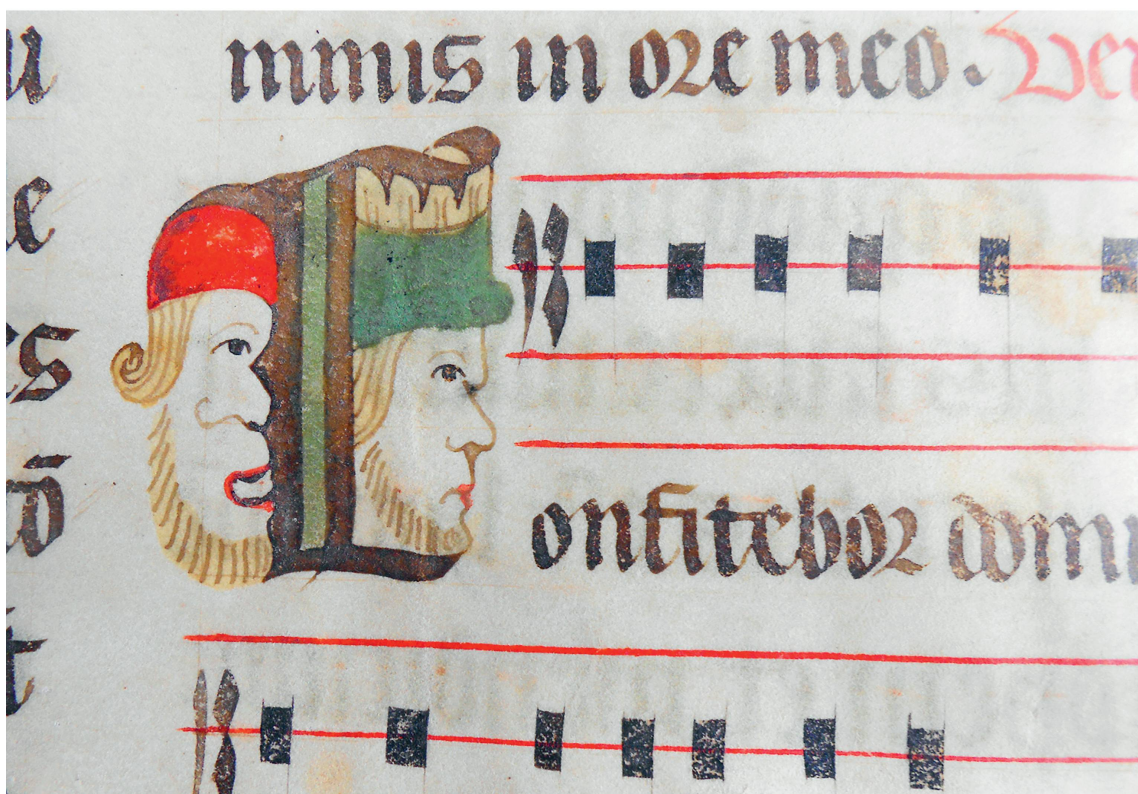 nimis in ore meo. Ver
Confitebor domi